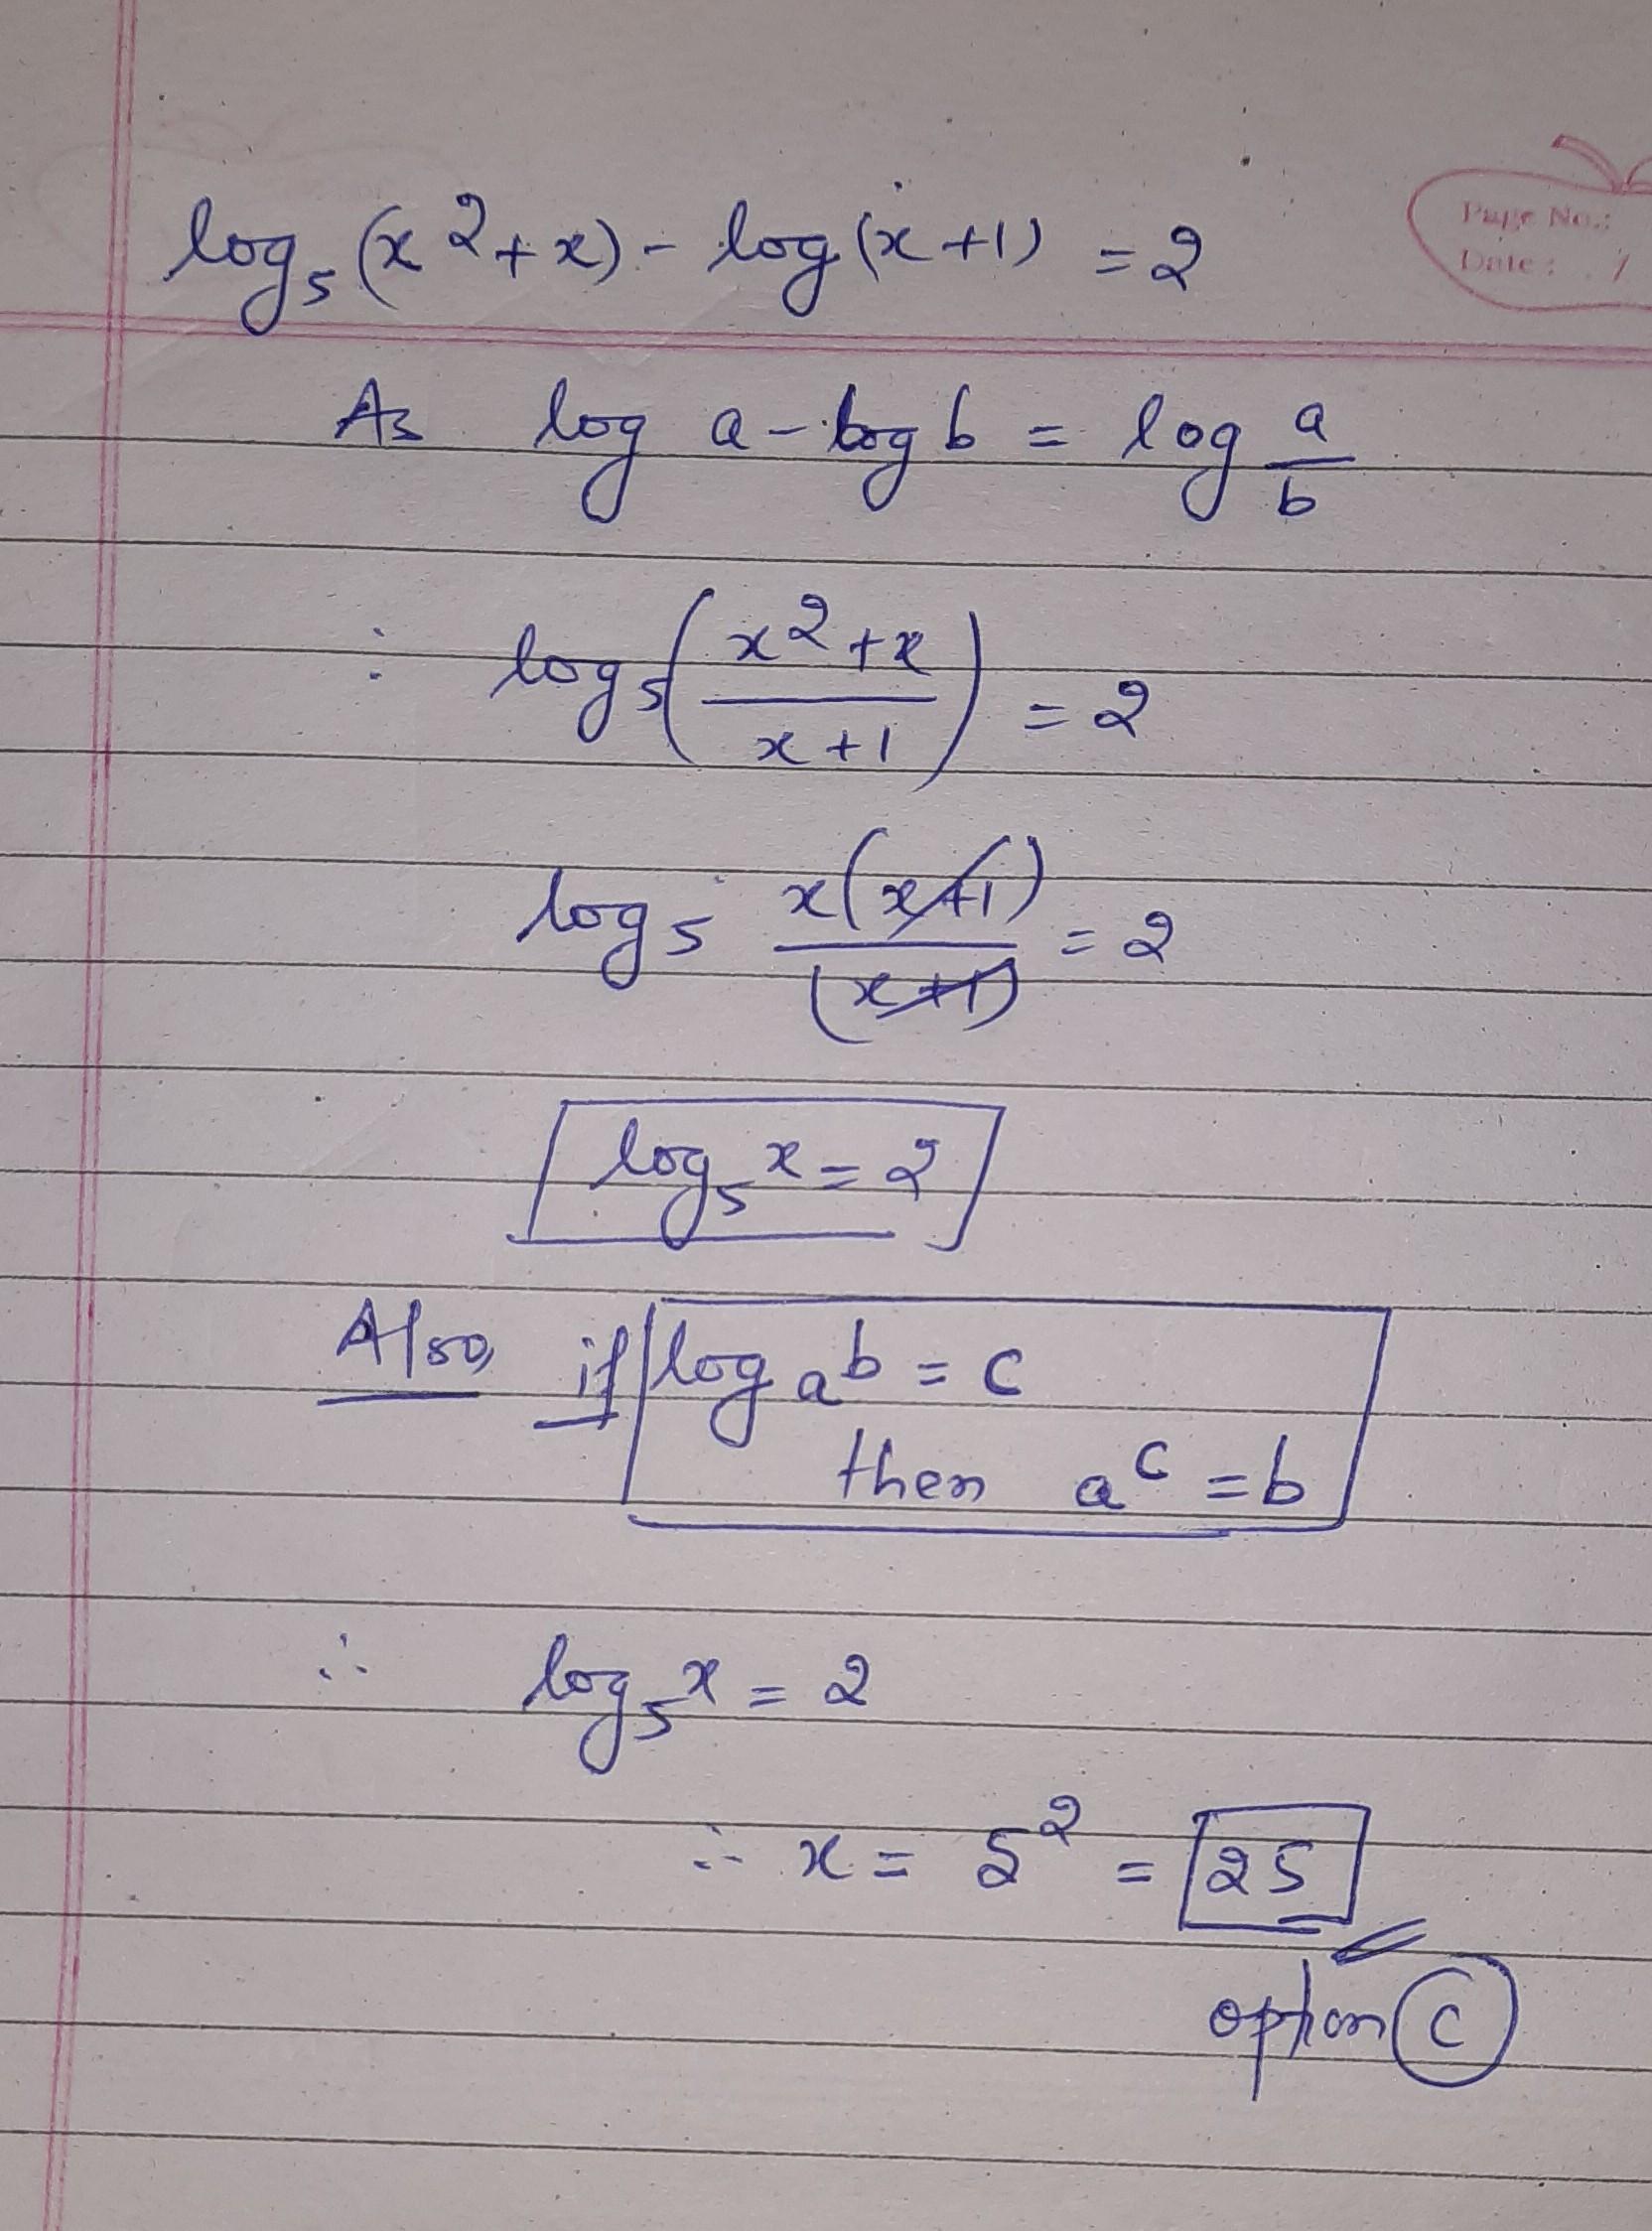 Page No.:
Date : /
log₅ (x² + x) - log (x + 1) = 2
As log a - log b = log a/b
∴ log₅ ((x² + x)/(x + 1)) = 2
log₅ x(x+1)/(x+1) = 2
log₅ x = 2
Also, if log ₐ b = c
then aᶜ = b
∴ log₅ x = 2
∴ x = 5² = 25
option C